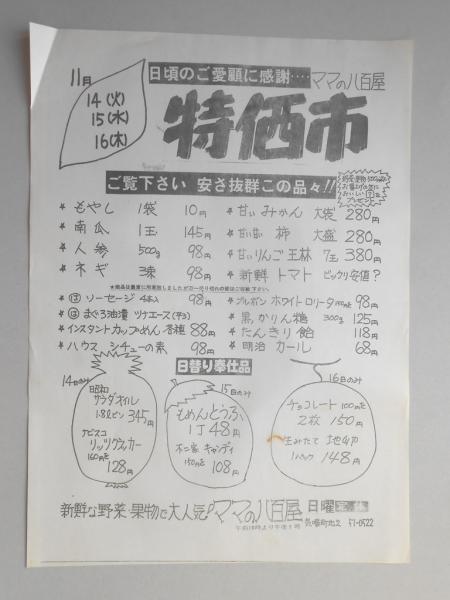 11月
14(火)
15(水)
16(木)
日頃のご愛顧に感謝‥‥ママの八百屋
特価市
ご覧下さい 安さ抜群この品々!!
プレゼント
★ もやし 1袋 10円
★ 南瓜 1玉 145円
★ 人参 500g 98円
★ ネギ 3束 98円
★ 甘いみかん 大袋 280円
★ 甘い甘い 柿 大盛 280円
★ 甘いりんご 王林 7玉 380円
★ 新鮮 トマト ビックリ安値?
★ は ソーセージ 4本入 98円
★ は まぐろ油漬 ツナエース(平3)
★ インスタントカップめん 各種 88円
★ ハウス シチューの素 98円
★ ブルボン ホワイトロリータ 98円
★ 黒かりん糖 300g 125円
★ たんきり飴 118円
★ 明治 カール 68円
日替り奉仕品
14日のみ
昭和
サラダオイル
1.8ℓビン 345円
ナビスコ
リッツクラッカー
160円を
128円
15日のみ
もめんとうふ
1丁 48円
不二家 キャンディ
150円を 108円
16日のみ
チョコレート 100円を
2枚 150円
生みたて 地卵
1パック 148円
新鮮な野菜・果物で大人気!ママの八百屋 日曜定休
午前10時より午後7時
51-0522